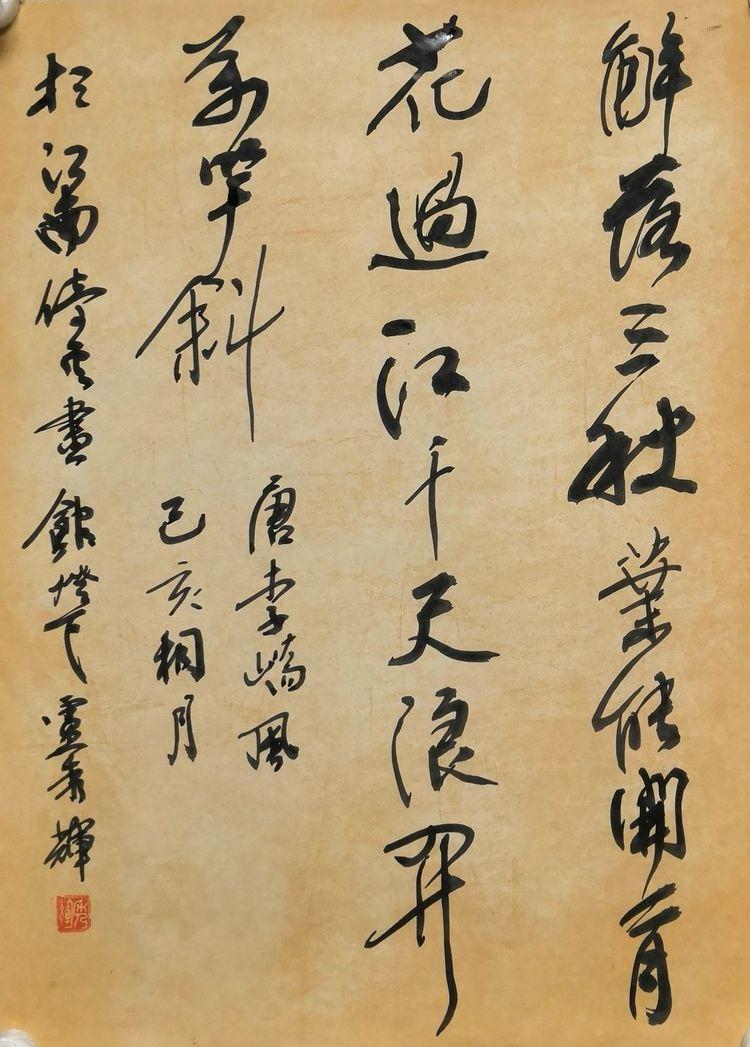 解落三秋葉能開二月
花過江千尺浪
萬竿斜
唐李嶠風
己亥桐月
於江南停雲畫館燈下盧秀輝